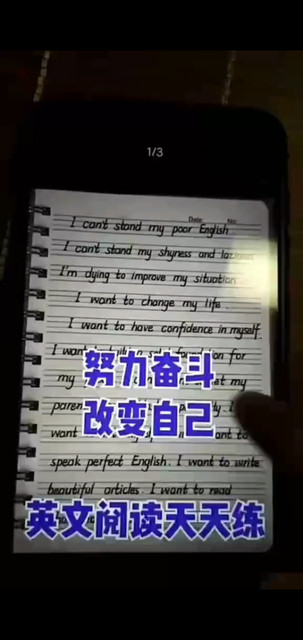 1/3
Date: No:
I can't stand my poor English
I can't stand my shyness and
I'm dying to improve my situation
I want to change my life.
I want to have confidence in myself.
I want for
my my
努力奋斗
paren
改变自己
want to
speak perfect English. I want to write
beautiful articles. I want to read
英文阅读天天练